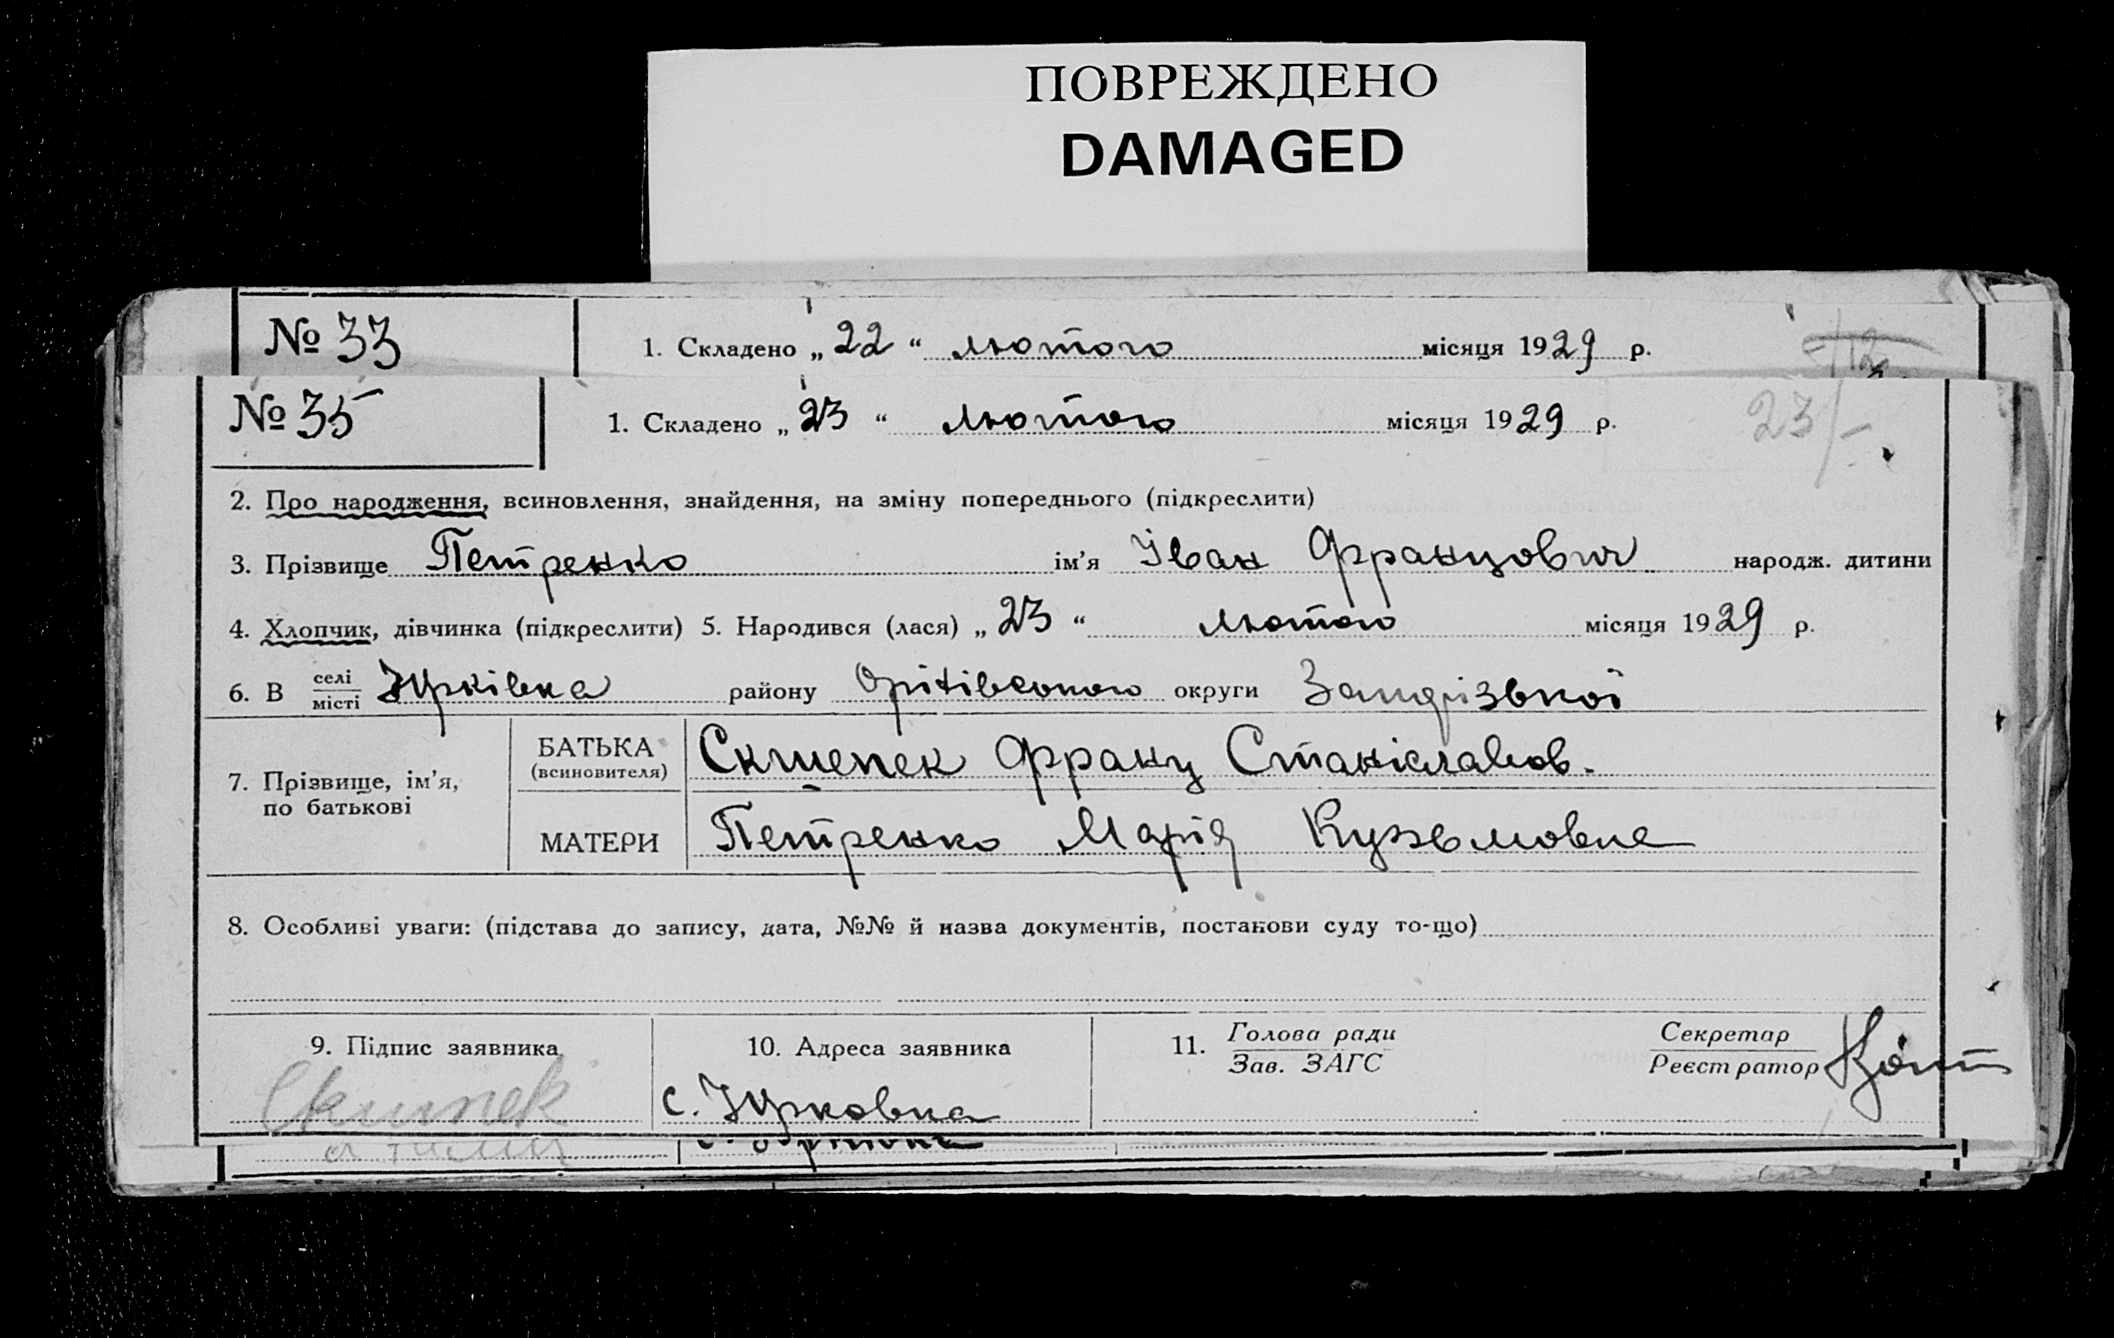 ПОВРЕЖДЕНО
DAMAGED
№ 33 1. Складено „ 22 “ лютого місяця 1929 р.
№ 35 1. Складено „ 23 “ лютого місяця 1929 р. 23/-
2. Про народження, всиновлення, знайдення, на зміну попереднього (підкреслити)
3. Прізвище Петренко ім’я Іван Францович народж. дитини
4. Хлопчик, дівчинка (підкреслити) 5. Народився (лася) „ 23 “ лютого місяця 1929 р.
6. В селі місті району округи
7. Прізвище, ім’я, по батькові
БАТЬКА (всиновителя) Франц Станіславов.
МАТЕРИ Петренко Марія Кузьмовна
8. Особливі уваги: (підстава до запису, дата, №№ й назва документів, постанови суду то-що)
9. Підпис заявника 10. Адреса заявника 11. Голова ради Зав. ЗАГС Секретар Реєстратор
с.